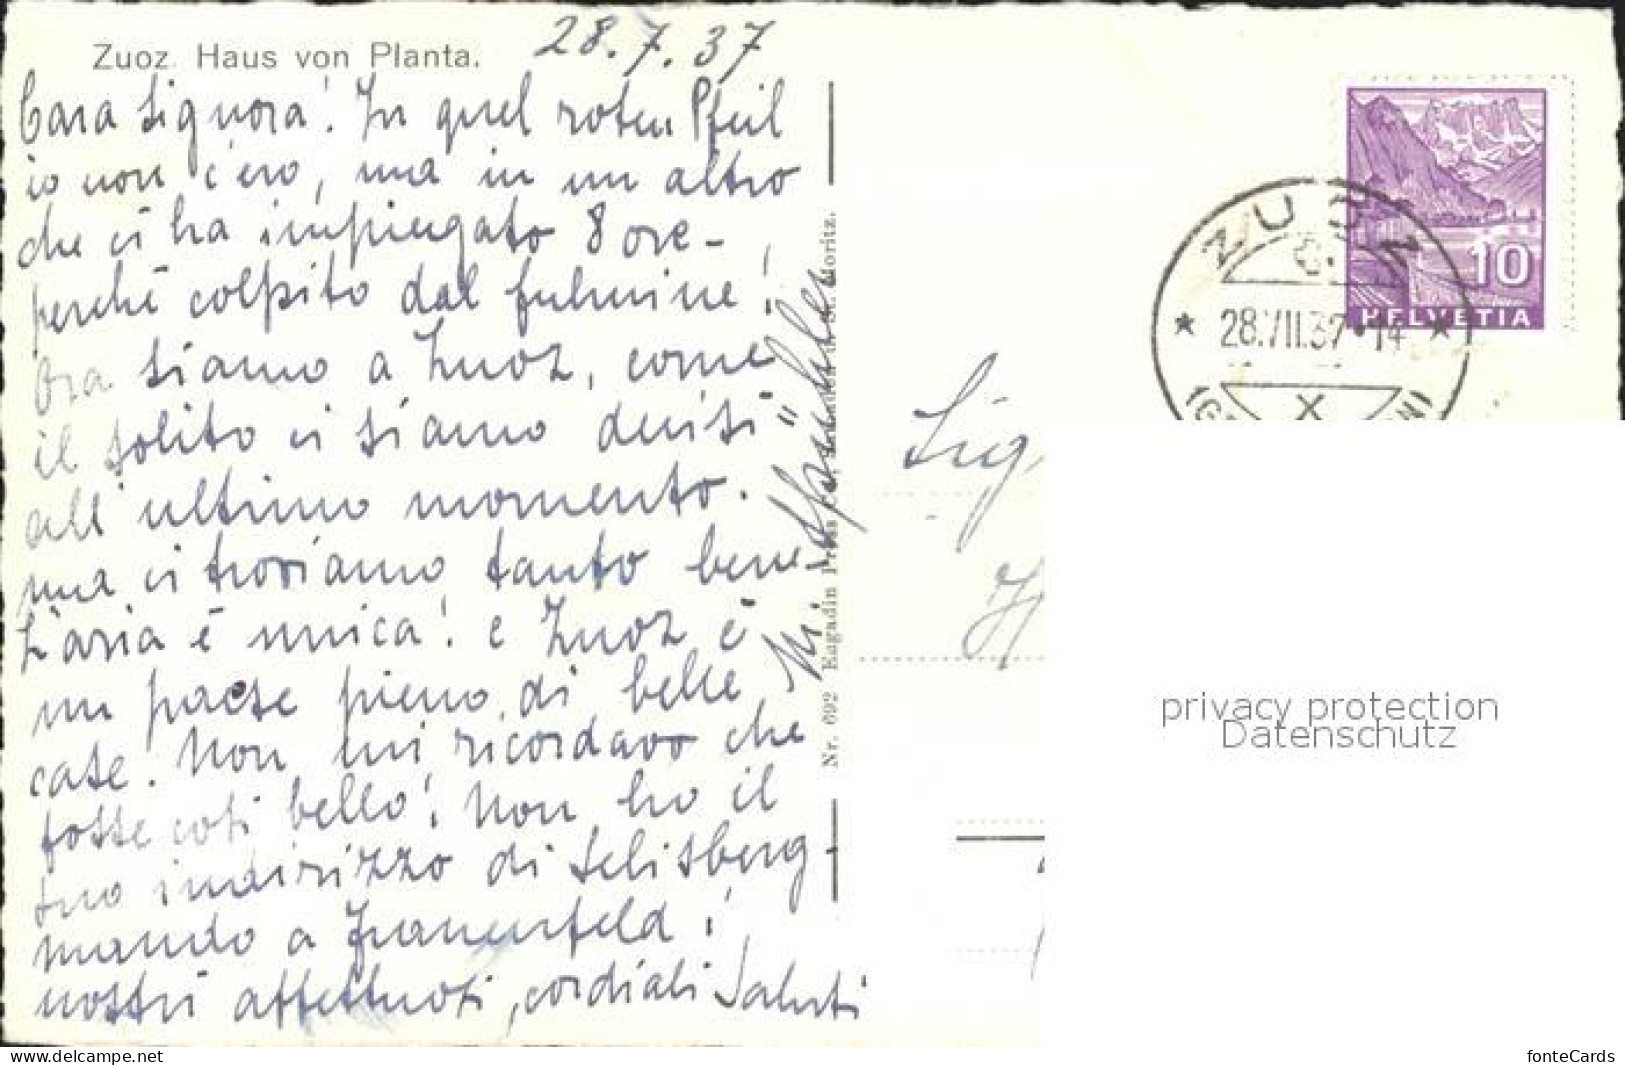 Zuoz. Haus von Planta.
28.7.37
Cara Signora! In quel roten Pfeil
io non c'ero, ma in un altro
che ci ha impiegato 8 ore –
perchè colpito dal fulmine!
Ora siamo a Zuoz, come
il solito ci siamo decisi
all'ultimo momento.
ma ci troviamo tanto bene –
L'aria è unica! e Zuoz è
un paese pieno di belle
case. Non mi ricordavo che
fosse così bello! Non ho il
tuo indirizzo di Selisberg –
mando a Frauenfeld!
nostri affettuosi, cordiali Saluti
Nr. 692 Engadin Press Co., St. Moritz.
ZUOZ
28.VII.37·14
X
10
HELVETIA
Sig.
privacy protection
Datenschutz
www.delcampe.net
marc.be
fonteCards